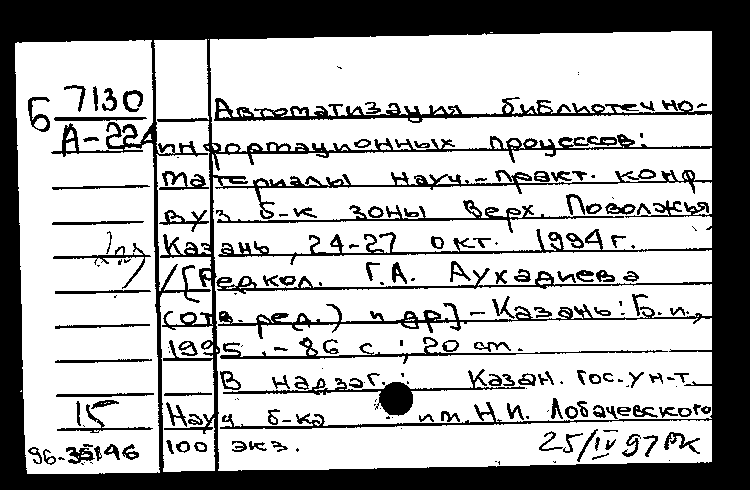 Б 7130
А-22
Автоматизация библиотечно-
информационных процессов:
Материалы науч.-практ. конф
вуз. б-к зоны Верх. Поволжья
Казань, 24-27 окт. 1994 г.
/[Редкол. Г.А. Аухадиева
(отв. ред.) и др].-Казань: Б.и.,
1995.-86 с.; 20 см.
В надзаг.: Казан. гос. ун-т.
15 Науч. б-ка им. Н.И. Лобачевского
96-35146 100 экз. 25/IV 97